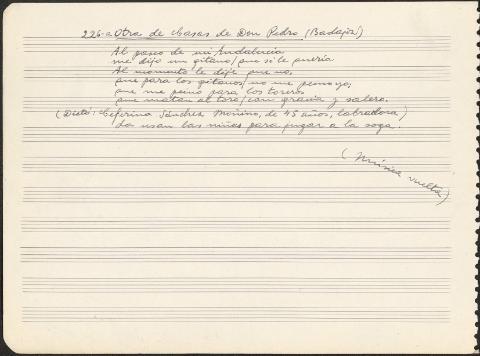 226-a Otra de Casas de Don Pedro (Badajoz)
Al paseo de mi Andalucía
me dijo un gitano/que si le quería
Al momento le dije que no,
que para los gitanos, no me peino yo,
que me peino para los toreros
que matan al toro/con gracia y salero.
(Dictó: Ceferina Sánchez Moñino, de 45 años, labradora)
La usan las niñas para jugar a la soga.
(Música vuelta)